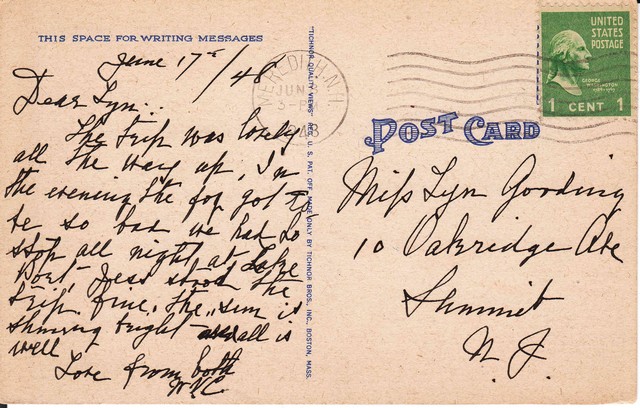 THIS SPACE FOR WRITING MESSAGES
June 17th/48
Dear Lyn..
The trip was lovely
all the way up, In
the evening the fog got to
be so bad we had to
stop all night at Lake
Port, Jess stood the
trip fine. The sun is
shining bright all is
well
Love from both
W & C
"TICHNOR QUALITY VIEWS" REG. U. S. PAT. OFF. MADE ONLY BY TICHNOR BROS., INC., BOSTON, MASS.
MEREDITH, N.H.
JUN
3-P
48
UNITED
STATES
POSTAGE
GEORGE
WASHINGTON
1 CENT 1
POST CARD
Miss Lyn Gooding
10 Oakridge Ave
Summit
N. J.